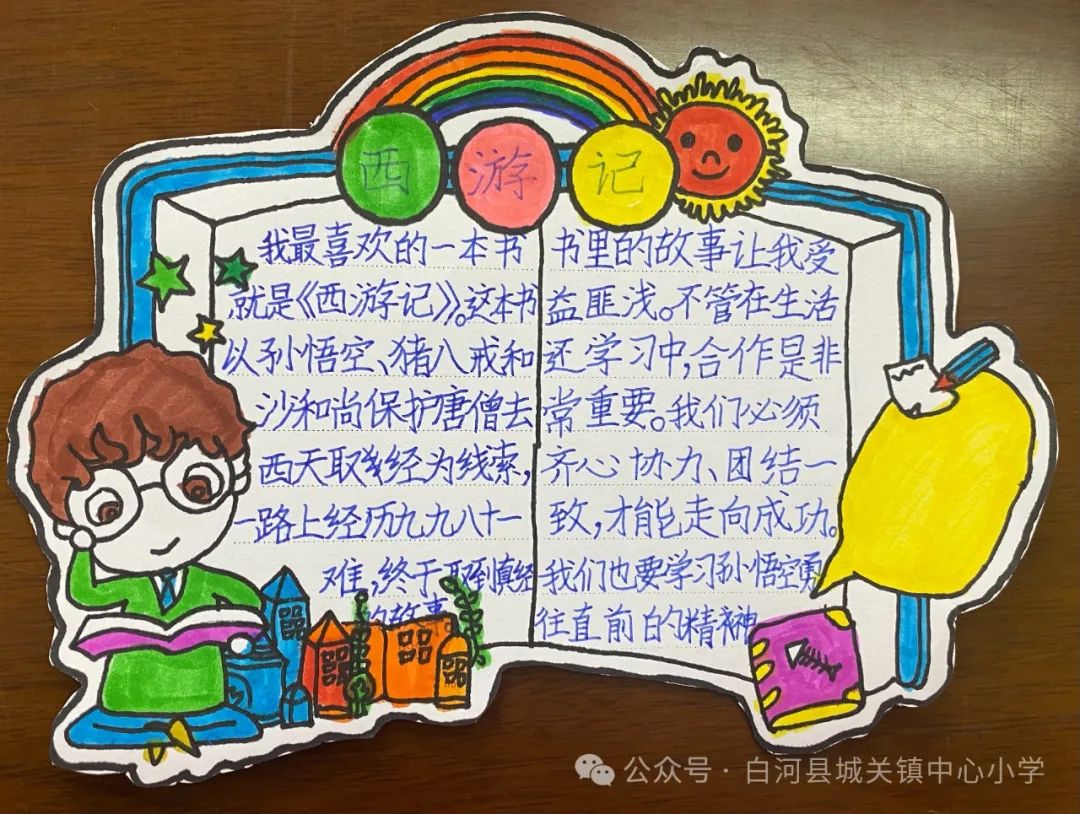 西游记
我最喜欢的一本书
就是《西游记》。这本书
以孙悟空、猪八戒和
沙和尚保护唐僧去
西天取经为线索,
一路上经历九九八十一
难,终于取到真经
的故事。
书里的故事让我受
益匪浅。不管在生活
还学习中,合作是非
常重要。我们必须
齐心协力、团结一
致,才能走向成功。
我们也要学习孙悟空勇
往直前的精神
公众号·白河县城关镇中心小学